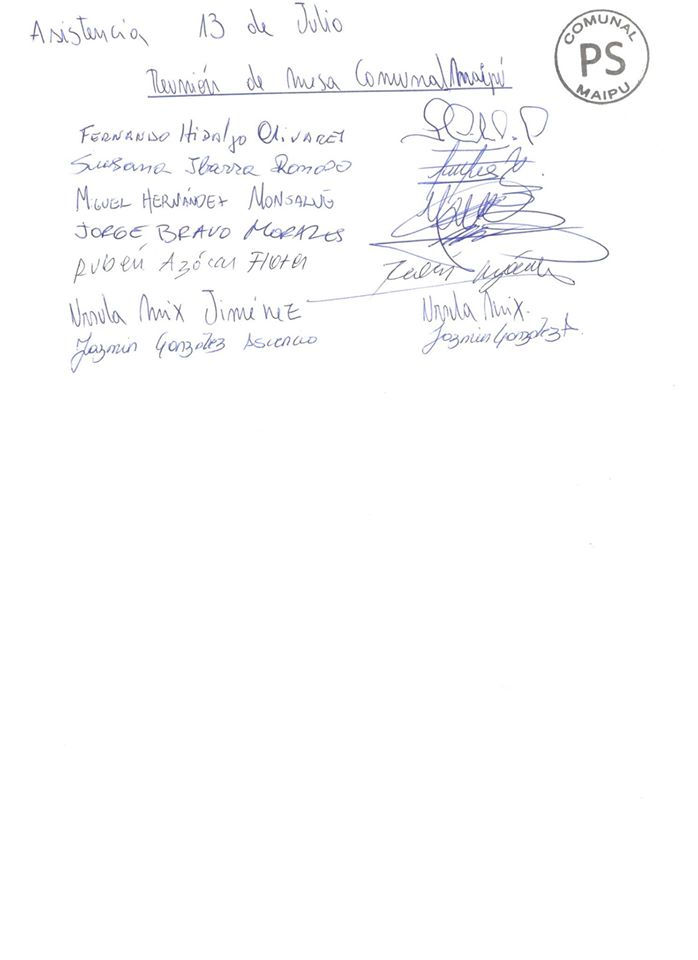 Asistencia 13 de Julio
COMUNAL PS MAIPU
Reunión de mesa Comunal Maipú
FERNANDO Hidalgo Olivares
Susana Ibarra
MIGUEL HERNÁNDEZ MONSALVE
JORGE BRAVO MORALES
Rubén Azócar Flores
Ursula Mix Jiménez Ursula Mix.
Jazmin González Ascencio Jazmin González A.